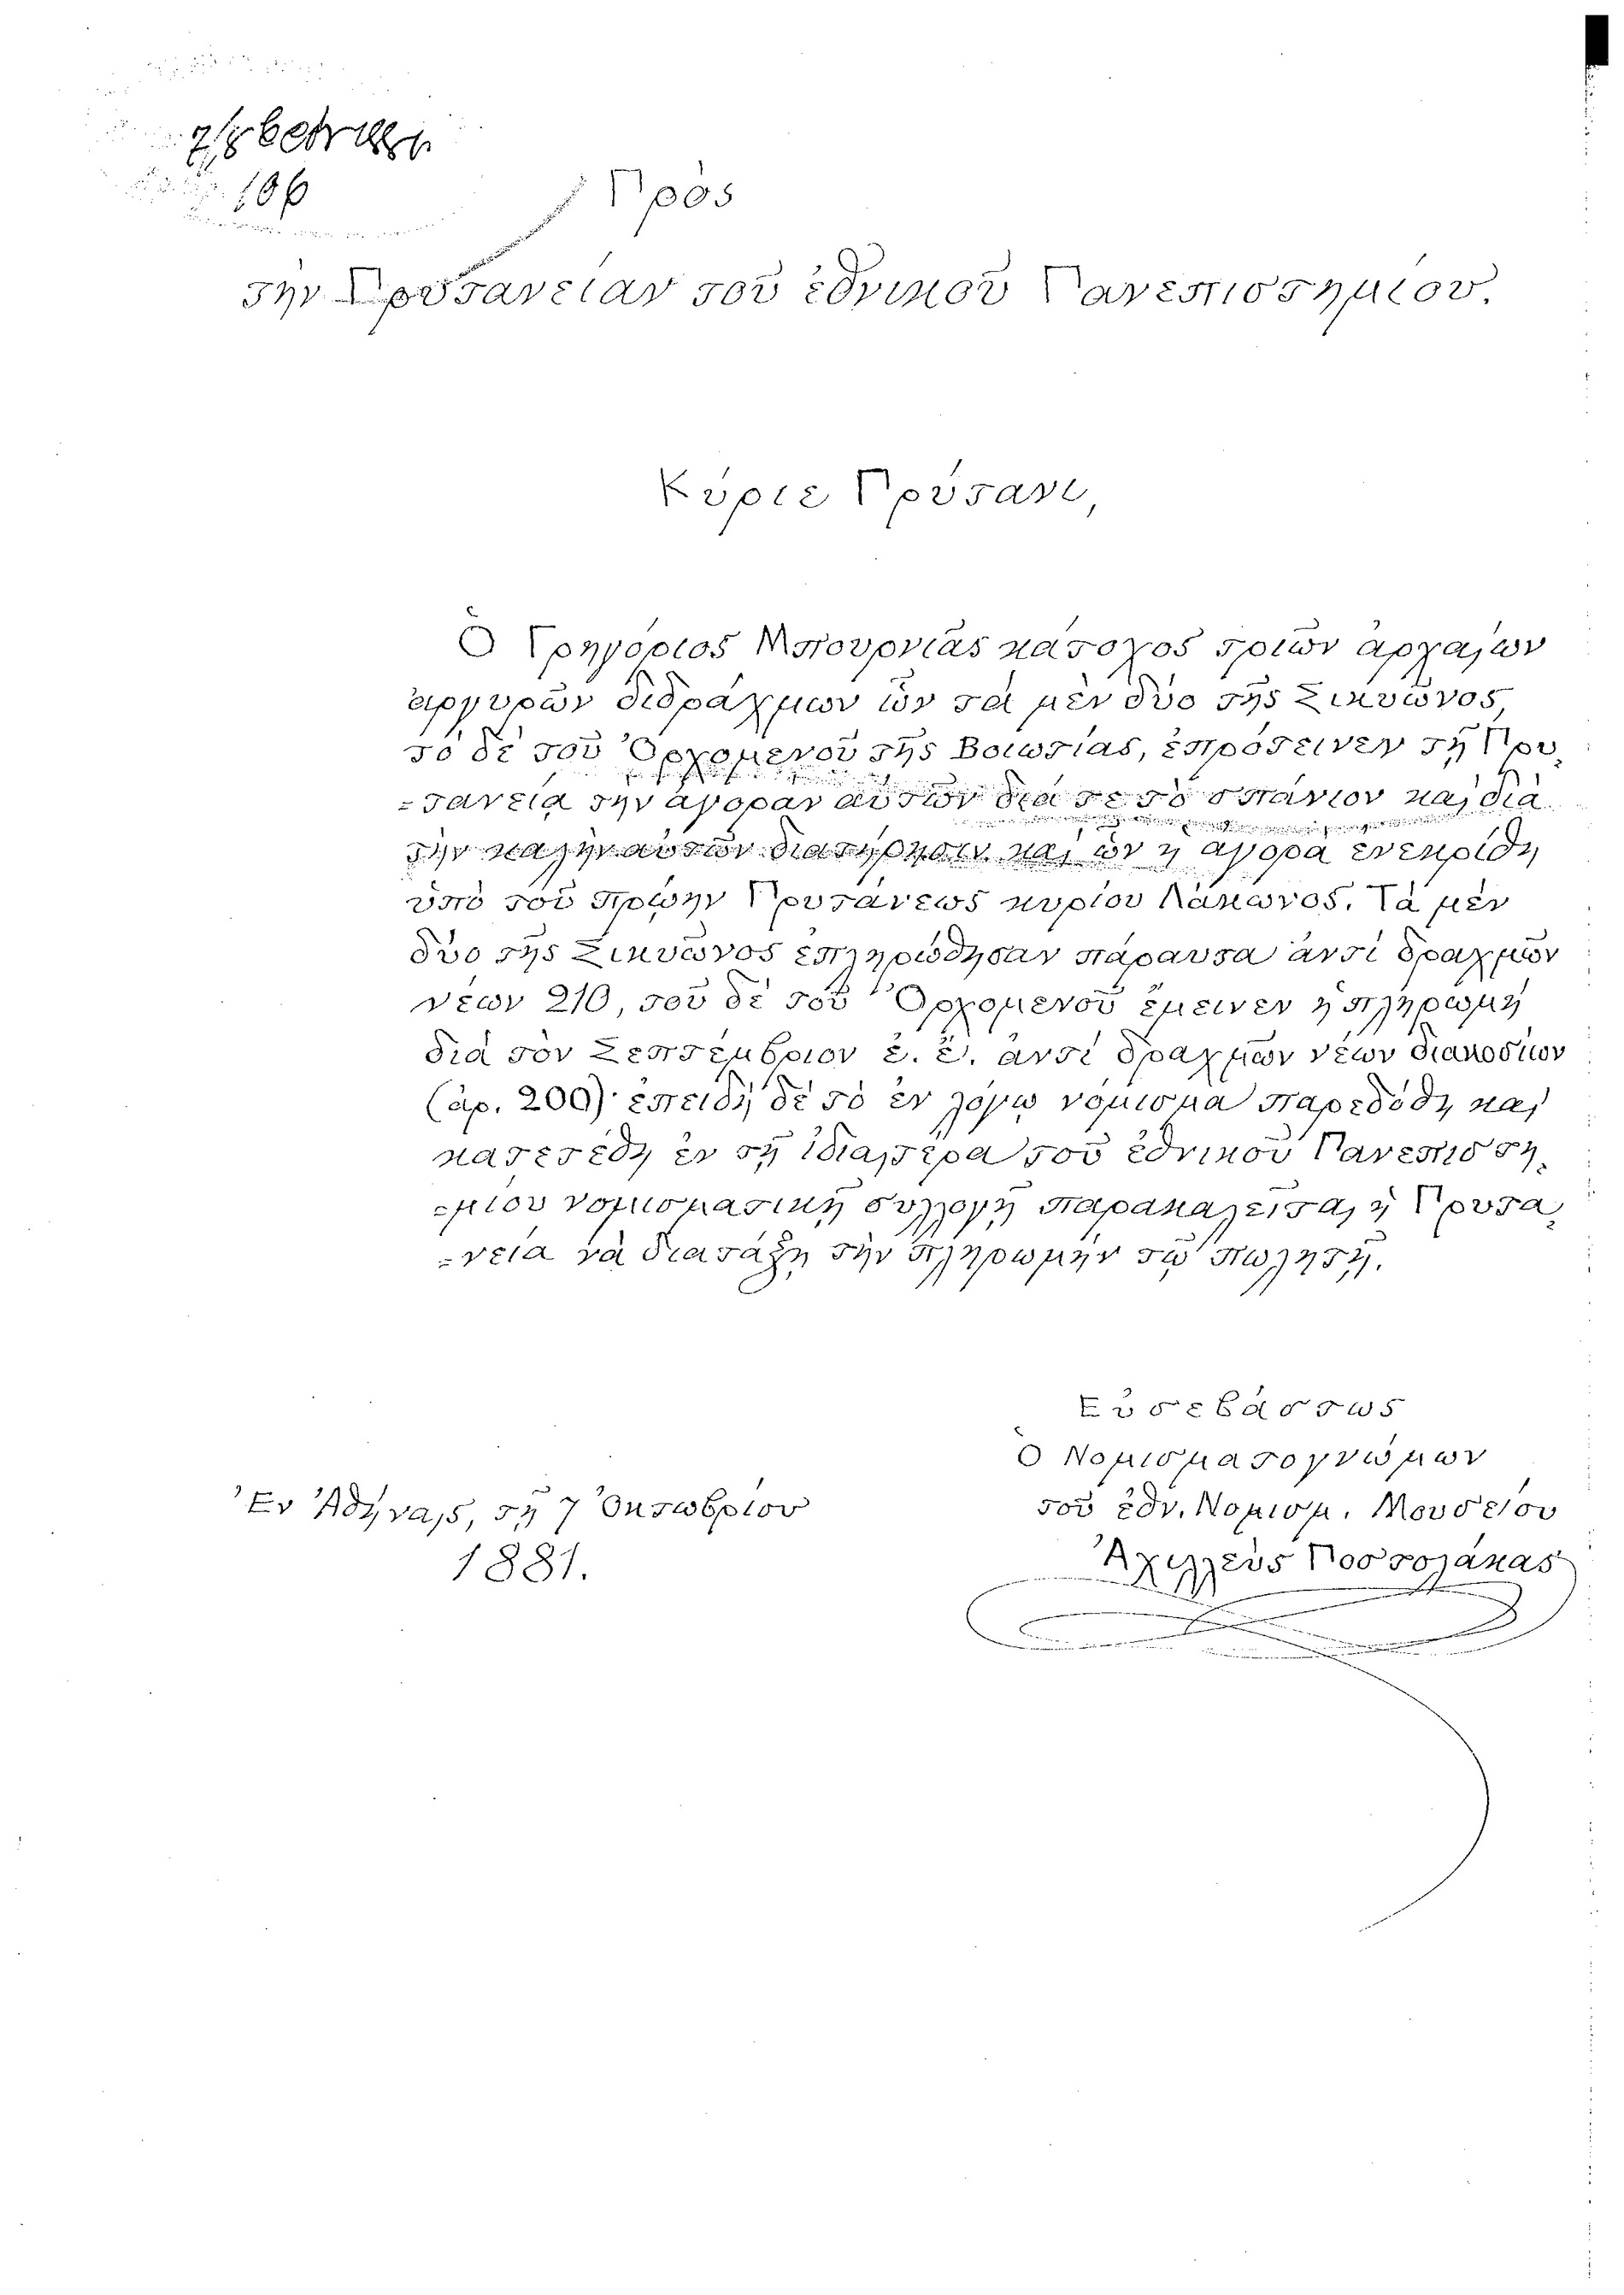 106
Πρὸς
τὴν Πρυτανείαν τοῦ ἐθνικοῦ Πανεπιστημίου.
Κύριε Πρύτανι,
Ὁ Γρηγόριος Μπουρνιᾶς κάτοχος τριῶν ἀρχαίων
ἀργυρῶν διδράχμων ὧν τὰ μὲν δύο τῆς Σικυῶνος,
τὸ δὲ τοῦ Ὀρχομενοῦ τῆς Βοιωτίας, ἐπρότεινεν τῇ Πρυ-
-τανείᾳ τὴν ἀγορὰν αὐτῶν διά τε τὸ σπάνιον καὶ διὰ
τὴν καλὴν αὐτῶν διατήρησιν καὶ ὧν ἡ ἀγορὰ ἐνεκρίθη
ὑπὸ τοῦ πρώην Πρυτάνεως κυρίου Λάκωνος. Τὰ μὲν
δύο τῆς Σικυῶνος ἐπληρώθησαν πάραυτα ἀντὶ δραχμῶν
νέων 210, τοῦ δὲ τοῦ Ὀρχομενοῦ ἔμεινεν ἡ πληρωμὴ
διὰ τὸν Σεπτέμβριον ἐ. ἔ. ἀντὶ δραχμῶν νέων διακοσίων
(ἀρ. 200)· ἐπειδὴ δὲ τὸ ἐν λόγῳ νόμισμα παρεδόθη καὶ
κατετέθη ἐν τῇ ἰδιαιτέρᾳ τοῦ ἐθνικοῦ Πανεπιστη-
-μίου νομισματικῇ συλλογῇ παρακαλεῖται ἡ Πρυτα-
-νεία νὰ διατάξῃ τὴν πληρωμὴν τῷ πωλητῇ.
Εὐσεβάστως
Ὁ Νομισματογνώμων
τοῦ ἐθν. Νομισμ. Μουσείου
Ἀχιλλεὺς Ποστολάκας
Ἐν Ἀθήναις, τῇ 7 Ὀκτωβρίου
1881.